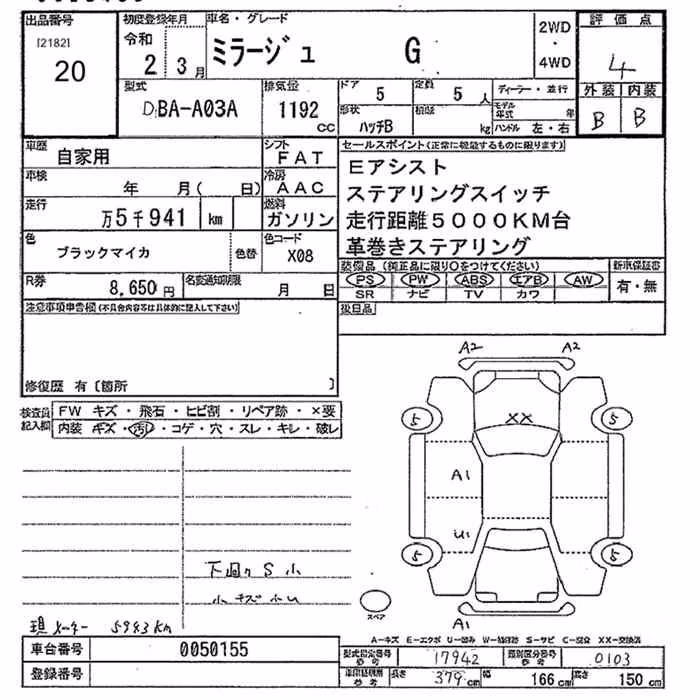 出品番号
[2182]
20
初度登録年月
令和
2 3月
車名・グレード
ミラージュ G
2WD
・
4WD
評価点
4
外装 内装
B B
型式
DBA-A03A
排気量
1192
CC
ドア 5
定員 5 人
形状
ハッチB
積載
kg
ディーラー・並行
モデル年式 年
ハンドル 左・右
車歴
自家用
シフト
FAT
車検
年 月( 日)
冷房
AAC
走行
万5千941 km
燃料
ガソリン
色
ブラックマイカ
色替
色コード
X08
R券
8,650円
名変通知期限
月 日
セールスポイント(正常に機能するものに限ります)
Eアシスト
ステアリングスイッチ
走行距離5000KM台
革巻きステアリング
装備品(純正品に限り○をつけてください)
新車保証書
PS PW ABS エアB AW
SR ナビ TV カワ
有・無
注意事項申告欄(不具合内容等は具体的に記入して下さい)
扱目品
修復歴 有〔箇所 〕
検査員記入欄
FW キズ・飛石・ヒビ割・リペア跡・×要
内装 キズ・汚レ・コゲ・穴・スレ・キレ・破レ
A2 A2
5 5
XX
A1
U1
5 5
スペア
A1
下廻りS小
小キズ
現メーター 5943km
A-キズ E-エクボ U-凹み W-補修跡 S-サビ C-腐食 XX-交換済
車台番号
0050155
登録番号
型式指定番号 参考
17942
類別区分番号 参考
0103
長さ 379cm
幅 166cm
高さ 150cm